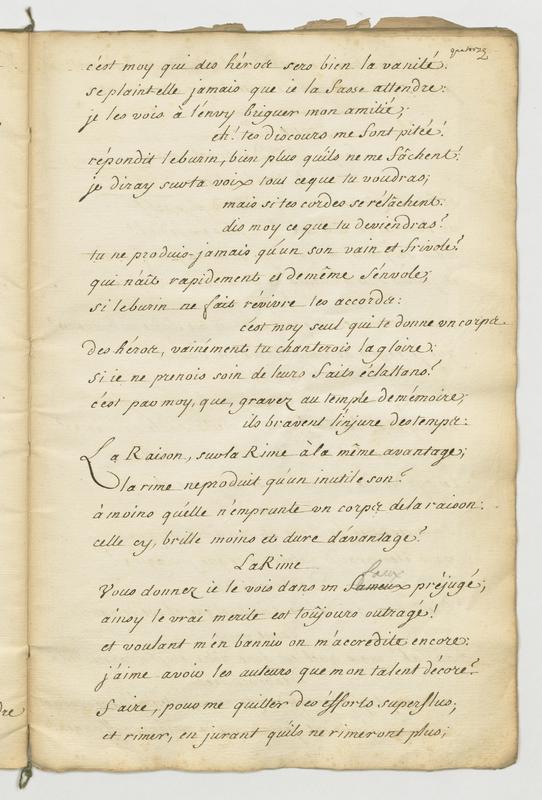 c'est moy qui des héros sers bien la vanité:
se plaint elle jamais que ie la fasse attendre:
je les vois à l'envy briguer mon amitié;
eh! tes discours me font pitié!
répondit le burin, bien plus qu'ils ne me fâchent:
je diray sur ta voix tout ce que tu voudras;
mais si tes cordes se relâchent:
dis moy ce que tu deviendras?
tu ne produis jamais qu'un son vain et frivole?
qui naît rapidement et de même s'envole;
si le burin ne fait révivre les accords:
c'est moy seul qui te donne un corps.
des héros, vainément tu chanterois la gloire:
si ie ne prenois soin de leurs faits éclattans?
c'est par moy, que, gravez au temple de mémoire;
ils bravent l'injure des temps:
La Raison, sur la Rime à la même avantage;
la rime ne produit qu'un inutile son?
à moins qu'elle n'emprunte un corps de la raison:
celle cy, brille moins et dure d'avantage?
La Rime
Vous donnez ie le vois dans un faux préjugé;
ainsy le vrai merite est toûjours outragé!
et voulant m'en bannir on m'accredite encore:
j'aime avoir les auteurs que mon talent décore?
faire, pour me quitter des éfforts superflus;
et rimer, en jurant qu'ils ne rimeront plus;